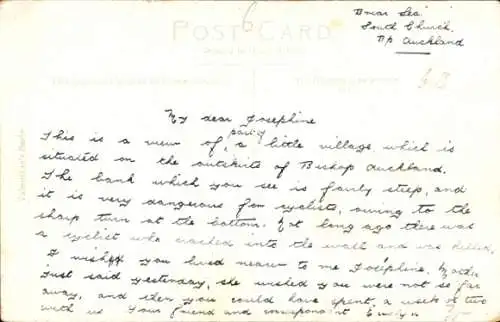 6
Briar Lea.
South Church.
Bp Auckland
POST CARD
63
My dear Josephine
This is a view of, part of a little village which is
situated on the outskirts of Bishop Auckland.
The bank which you see is fairly steep, and
it is very dangerous for cyclists, owing to the
sharp turn at the bottom. Not long ago there was
a cyclist who crashed into the wall and was killed.
I wish you lived nearer to me Josephine. Mother
just said yesterday, she wished you were not so far
away, and then you could have spent a week or two
with us Your friend and correspondent Evelyn